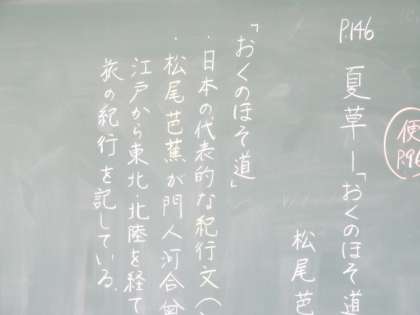 P.146
夏草―「おくのほそ道
松尾芭
便
P96
「おくのほそ道」
・日本の代表的な紀行文(
・松尾芭蕉が門人河合曾
江戸から東北・北陸を経て
旅の紀行を記している。